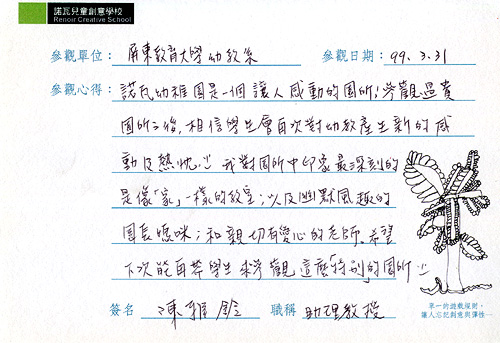 諾瓦兒童創意學校
Renoir Creative School
參觀單位：屏東教育大學幼教系 參觀日期：99.3.31
參觀心得：諾瓦幼稚園是一個讓人感動的園所！參觀過貴
園所之後，相信學生會再次對幼教產生新的感
動及熱忱！！我對園所中印象最深刻的
是像「家」一樣的教室；以及幽默風趣的
園長媽咪；和親切有愛心的老師。希望
下次能再帶學生來參觀這麼「特別」的園所！！
簽名 陳雅鈴 職稱 助理教授
讓人忘記創意與彈性…